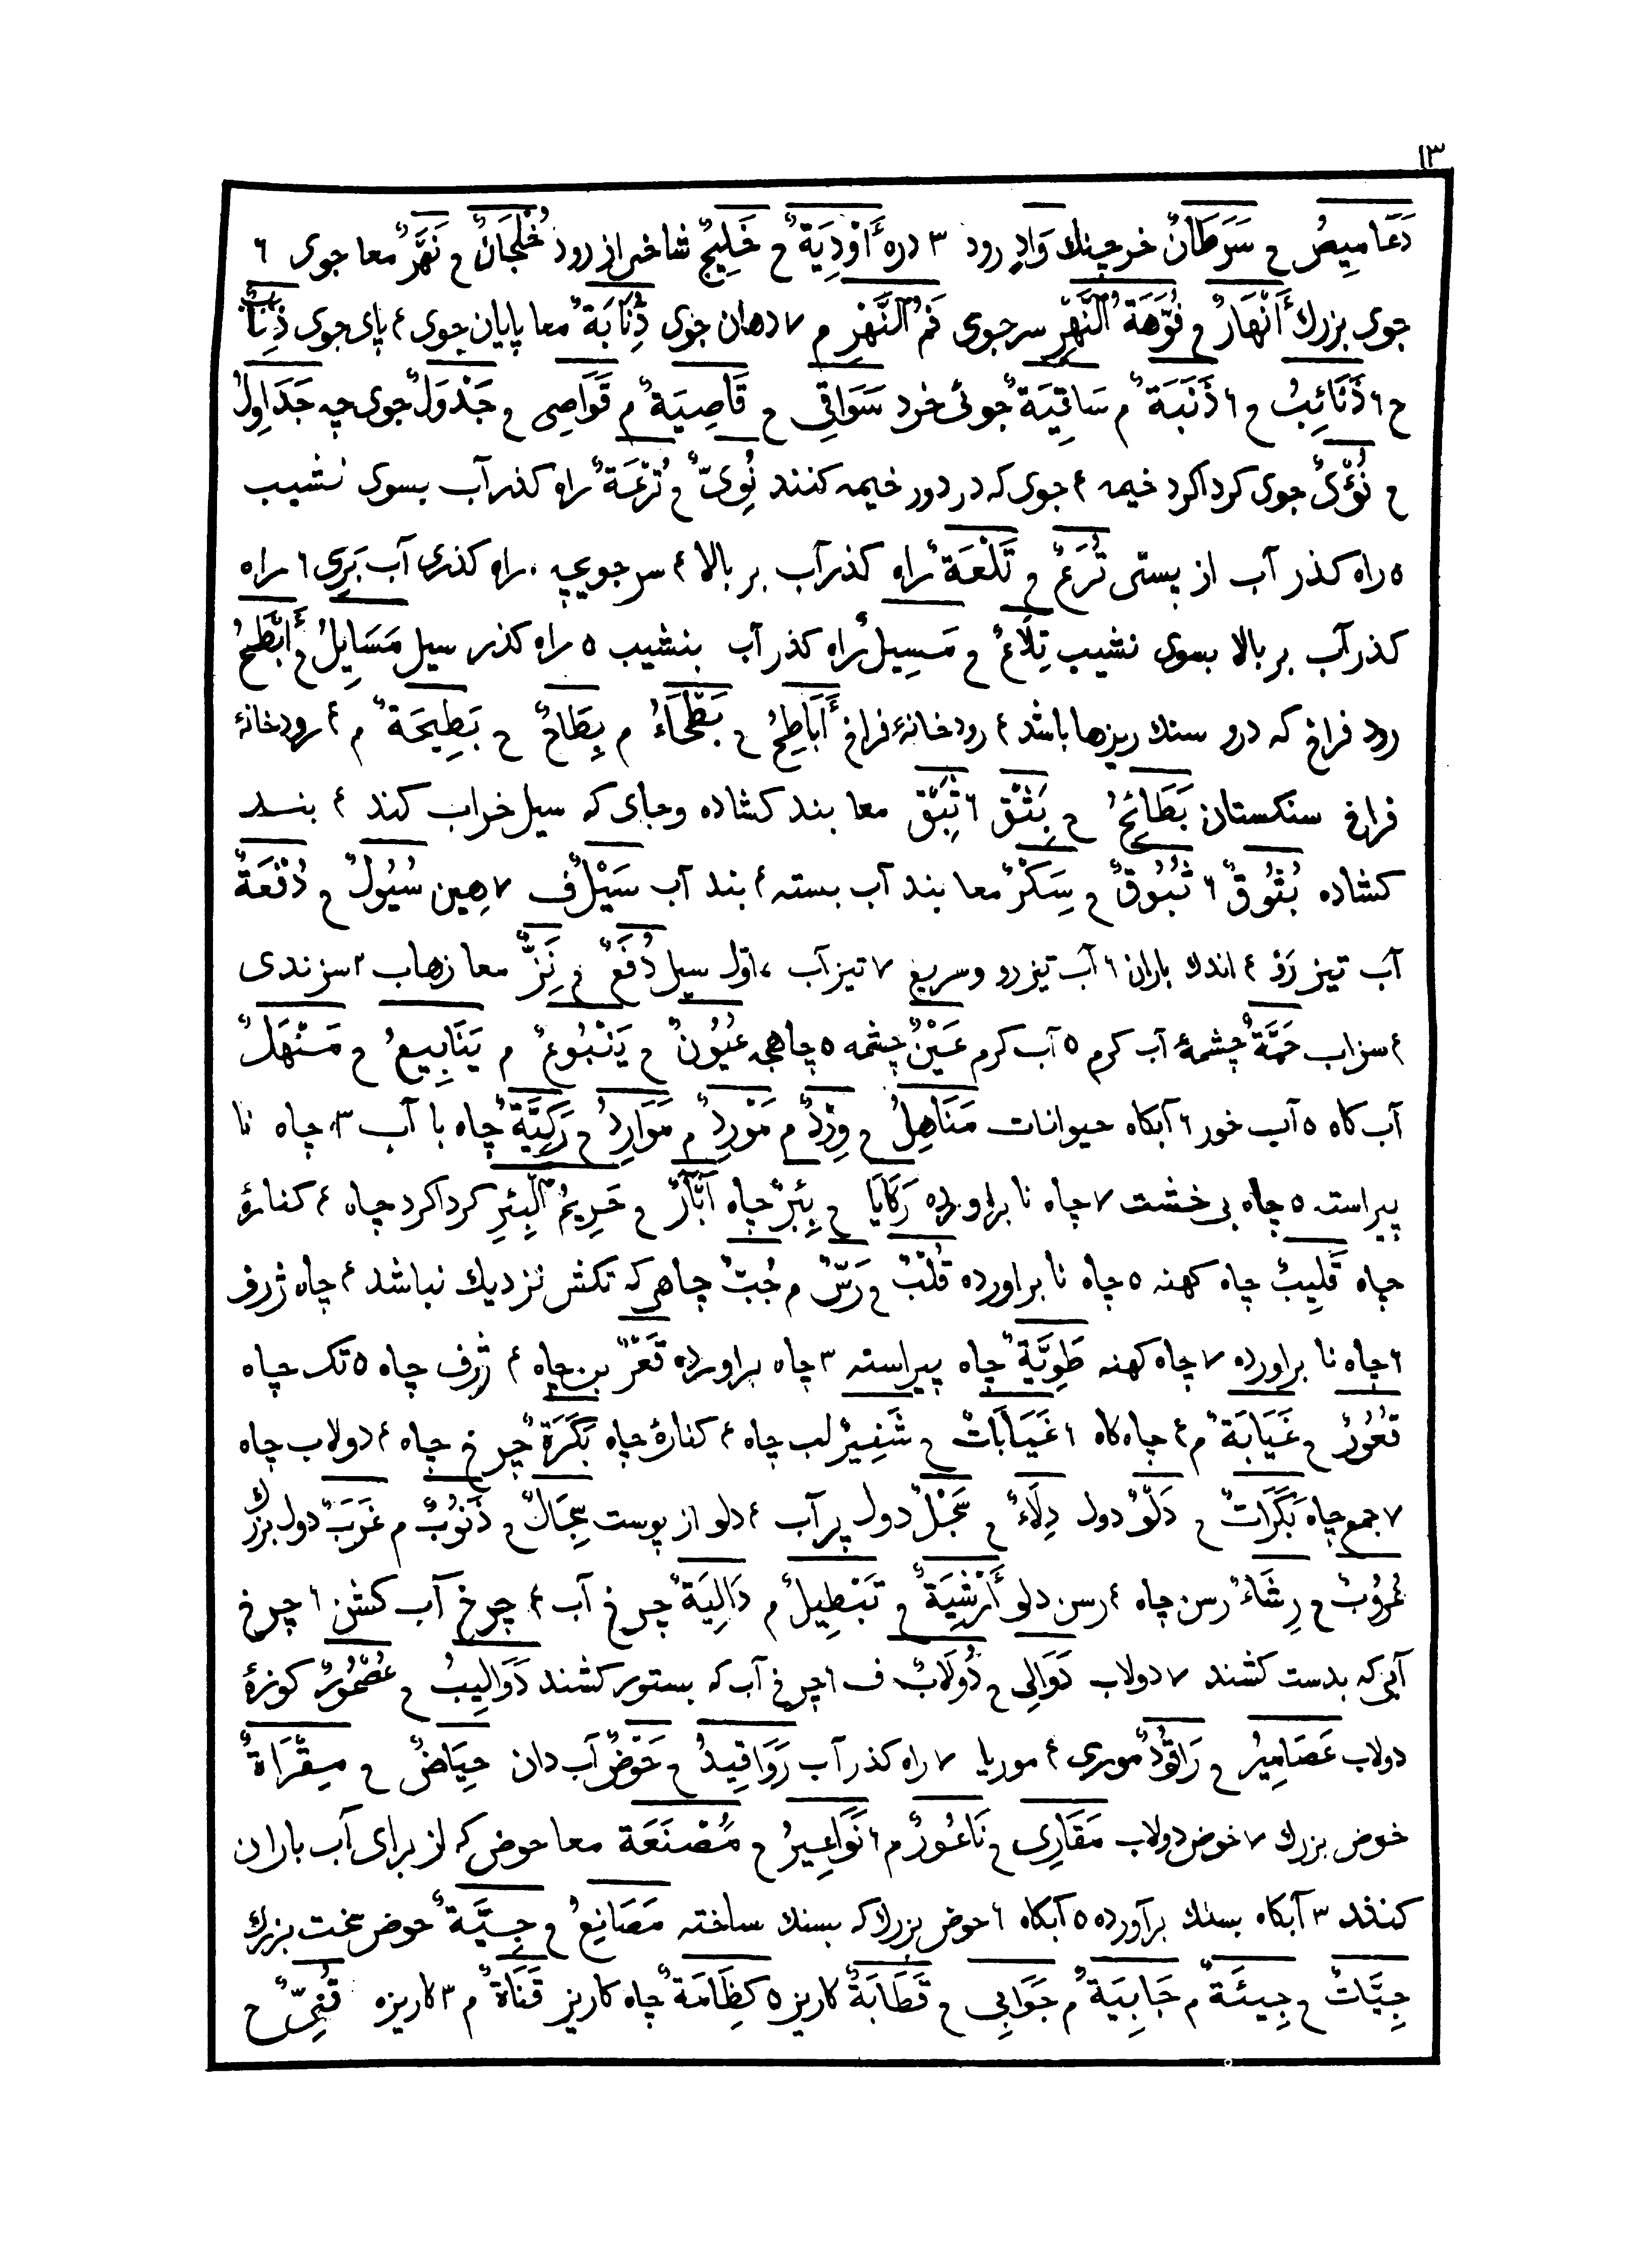 ١٣
دَعَامِيصُ ح سَرَطَانٌ خرچنك وَادٍ رود ٣ دره أَوْدِيَةٌ ح خَلِيجٌ شاخى از رود خُلْجَانٌ ح نَهَرٌ معا جوى ٦
جوى بزرك أَنْهَارٌ ح فُوَّهَةُ النَّهْرِ سر جوى فَمُ النَّهْرِ م ٧ دهان جوى ذُِنَابَةٌ معا پايان جوى ۴ پاى جوى ذِنَابٌ
ح ٦ ذَنَائِبُ ح ٦ ذَنَبَةٌ م سَاقِيَةٌ جوئى خرد سَوَاقِى ح قَاصِيَةٌ م قَوَاصِى ح جَدْوَلٌ جوى چه جَدَاوِلُ
ح نُؤْىٌ جوى كرداكرد خيمه ۴ جوى كه در دور خيمه كنند نُوِىٌّ ح تُرْعَةٌ راه كذر آب بسوى نشيب
٥ راه كذر آب از پستى تُرَعٌ ح تَلْعَةٌ راه كذر آب بر بالا ۴ سر جويچه ، راه كذرى آب بَرِى ٦ راه
كذر آب بر بالا بسوى نشيب تِلَاعٌ ح مَسِيلٌ راه كذر آب بنشيب ٥ راه كذر سيل مَسَايِلُ ح أَبْطَحُ
رود فراخ كه درو سنك ريزها باشد ۴ رود خانهٔ فراخ أَبَاطِحُ ح بَطْحَاءُ م بِطَاحٌ ح بَطِيحَةٌ م ۴ رودخانهٔ
فراخ سنكستان بَطَائِحُ ح بَِثْق ٦ ثَِبْق معا بند كشاده وجاى كه سيل خراب كند ۴ بند
كشاده بُثُوقٌ ٦ ثُبُوقٌ ح سَِكْرٌ معا بند آب بسته ۴ بند آب سَيْلٌ ف ٧ هين سُيُولٌ ح دُفْعَةٌ
آب تيز رَوْ ۴ اندك باران ٦ آب تيز رو وسريع ٧ تيز آب ، اوّل سيل دُفَعٌ ح نَِزٌّ معا زهاب ٢ سزندى
۴ سزاب حَمَّةٌ چشمهٔ آب كرم ٥ آب كرم عَيْنٌ چشمه ٥ چاهجه عُيُونٌ ح يَنْبُوعٌ م يَنَابِيعُ ح مَنْهَلٌ
آب كاه ٥ آب خور ٦ آبكاه حيوانات مَنَاهِلُ ح وِرْدٌ م مَوْرِدٌ م مَوَارِدُ ح رَكِيَّةٌ چاه با آب ٣ چاه نا
پيراسته ٥ چاه بى خشت ٧ چاه نا براورده رَكَايَا ح بِئْرٌ چاه آبَآرٌ ح حَرِيمُ الْبِئْرِ كرداكرد چاه ۴ كنارهٔ
چاه قَلِيبٌ چاه كهنه ٥ چاه نا براورده قُلْبٌ ح رَسٌّ م جُبٌّ چاهى كه تكش نزديك نباشد ۴ چاه ژرف
٦ چاه نا براورده ٧ چاه كهنه طَوِيَّةٌ چاه پيراسته ٣ چاه براورده قَعْرٌ بن چاه ۴ ژرف چاه ٥ تك چاه
قُعُورٌ ح غَيَابَةٌ م ۴ چاه كاه ٦ غَيَابَاتٌ ح شَفِيرٌ لب چاه ۴ كنارهٔ چاه بَكَرَةٌ چرخ چاه ۴ دولاب چاه
٧ جمع چاه بَكَرَاتٌ ح دَلْوٌ دول دِلَاءٌ ح سَجْلٌ دول پر آب ۴ دلو از پوست سِجَالٌ ح ذَنُوبٌ م غَرَبٌ دول بزرك
غُرُوبٌ ح رِشَاءٌ رسن چاه ۴ رسن دلو أَرْشِيَةٌ ح تَبْطِيلٌ م دَالِيَةٌ چرخ آب ۴ چرخ آب كش ٦ چرخ
آبى كه بدست كشند ٧ دولاب دَوَالِى ح دُولَابٌ ف ٦ چرخ آب كه بستور كشند دَوَالِيبُ ح عُصْمُورٌ كوزهٔ
دولاب عَصَامِيرُ ح رَاقُودٌ مورى ۴ موريا ٧ راه كذر آب رَوَاقِيدُ ح حَوْضٌ آب دان حِيَاضٌ ح مِقْرَاةٌ
خوض بزرك ٧ خوض دولاب مَقَارِى ح نَاعُورٌ م ٦ نَوَاعِيرُ ح مَُصْنَعَة معا حوض كه از براى آب باران
كنند ٣ آبكاه بسنك برآورده ٥ آبكاه ٦ حوض بزرك كه بسنك ساخته مَصَانِعُ ح جِيَّةٌ حوض سخت بزرك
جِيَّاتٌ ح جِيئَةٌ م جَابِيَةٌ م جَوَابِى ح قَطَابَةٌ كاريز ٥ كِظَامَةٌ چاه كاريز قَنَاةٌ م ٣ كاريزه قُنِىٌّ ح